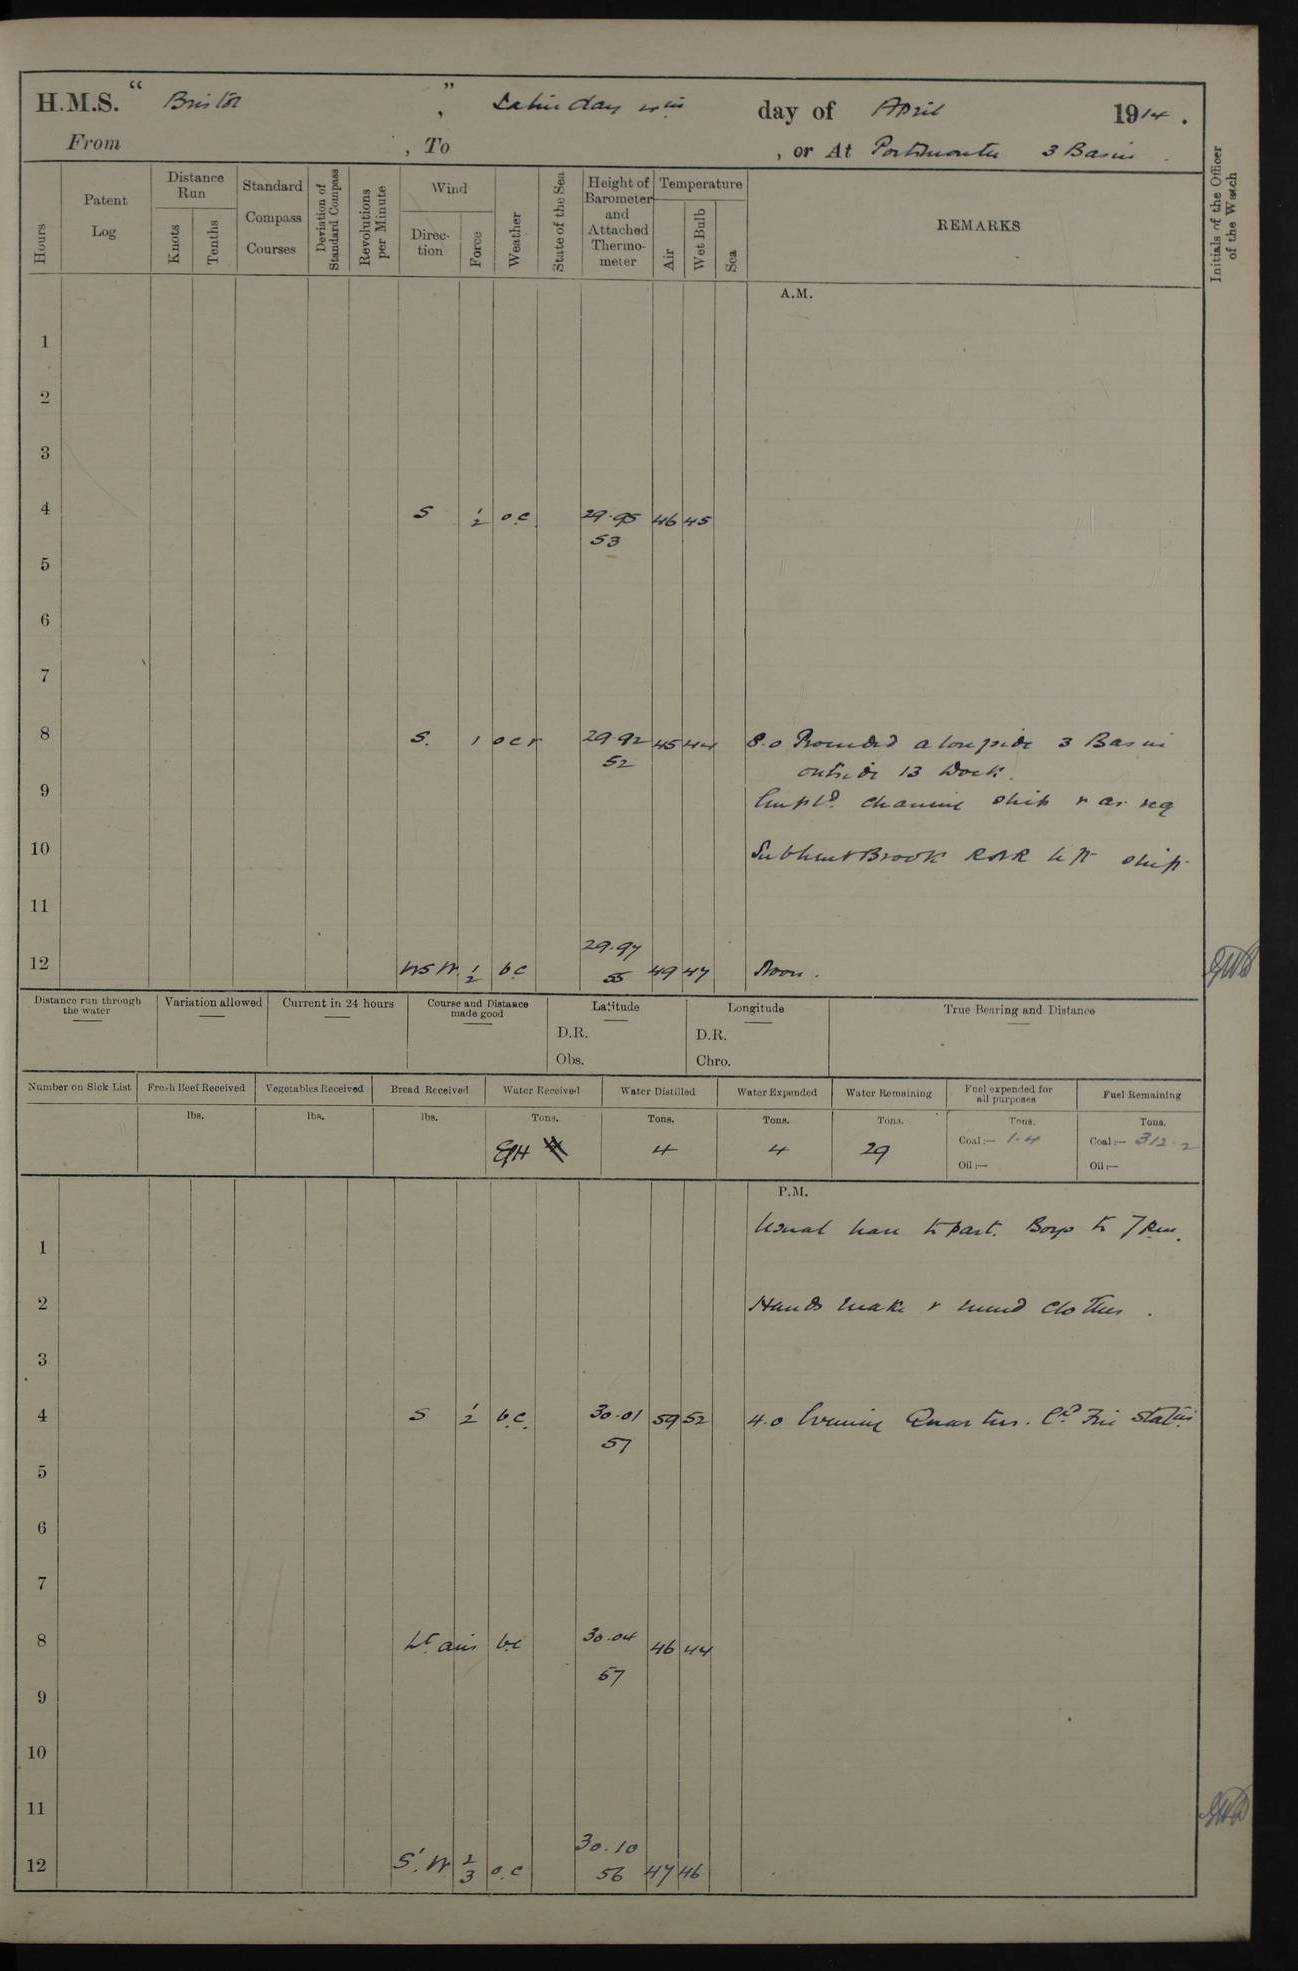 H.M.S. “ Bristol ” , Saturday 4th day of April 1914 .
From , To , or At Portsmouth 3 Basin .
Hours
Patent Log
Distance Run
Knots
Tenths
Standard Compass Courses
Deviation of Standard Compass
Revolutions per Minute
Wind
Direc-tion
Force
Weather
State of the Sea
Height of Barometer and Attached Thermo-meter
Temperature
Air
Wet Bulb
Sea
REMARKS
Initials of the Officer of the Watch
A.M.
1
2
3
4 S 1/2 o.c 29.95 46 45
53
5
6
7
8 S. 1 o c r 29.92 45 44 8.0 Proceeded alongside 3 Basin
52 outside 13 Dock.
9 Empld. cleaning ship & as req
10 Sub Lieut Brook RNR left ship
11
29.97
12 WSW. 1/2 b.c 55 49 47 Noon.
Distance run through the water
Variation allowed
Current in 24 hours
Course and Distance made good
Latitude
D.R.
Obs.
Longitude
D.R.
Chro.
True Bearing and Distance
Number on Sick List
Fresh Beef Received
lbs.
Vegetables Received
lbs.
Bread Received
lbs.
Water Received
Tons.
Water Distilled
Tons.
4
Water Expended
Tons.
4
Water Remaining
Tons.
29
Fuel expended for all purposes
Tons.
Coal:— 1.4
Oil:—
Fuel Remaining
Tons.
Coal:— 312.2
Oil:—
P.M.
Usual leave to part. Boys to 7 p.m.
1
2 Hands make & mend clothes .
3
4 S 1/2 b.c. 30.01 59 52 4.0 Evening Quarters. Exd Fire Statns
57
5
6
7
8 Lt airs b.c 30.04 46 44
57
9
10
11
30.10
12 S'.W 2/3 o.c 56 47 46